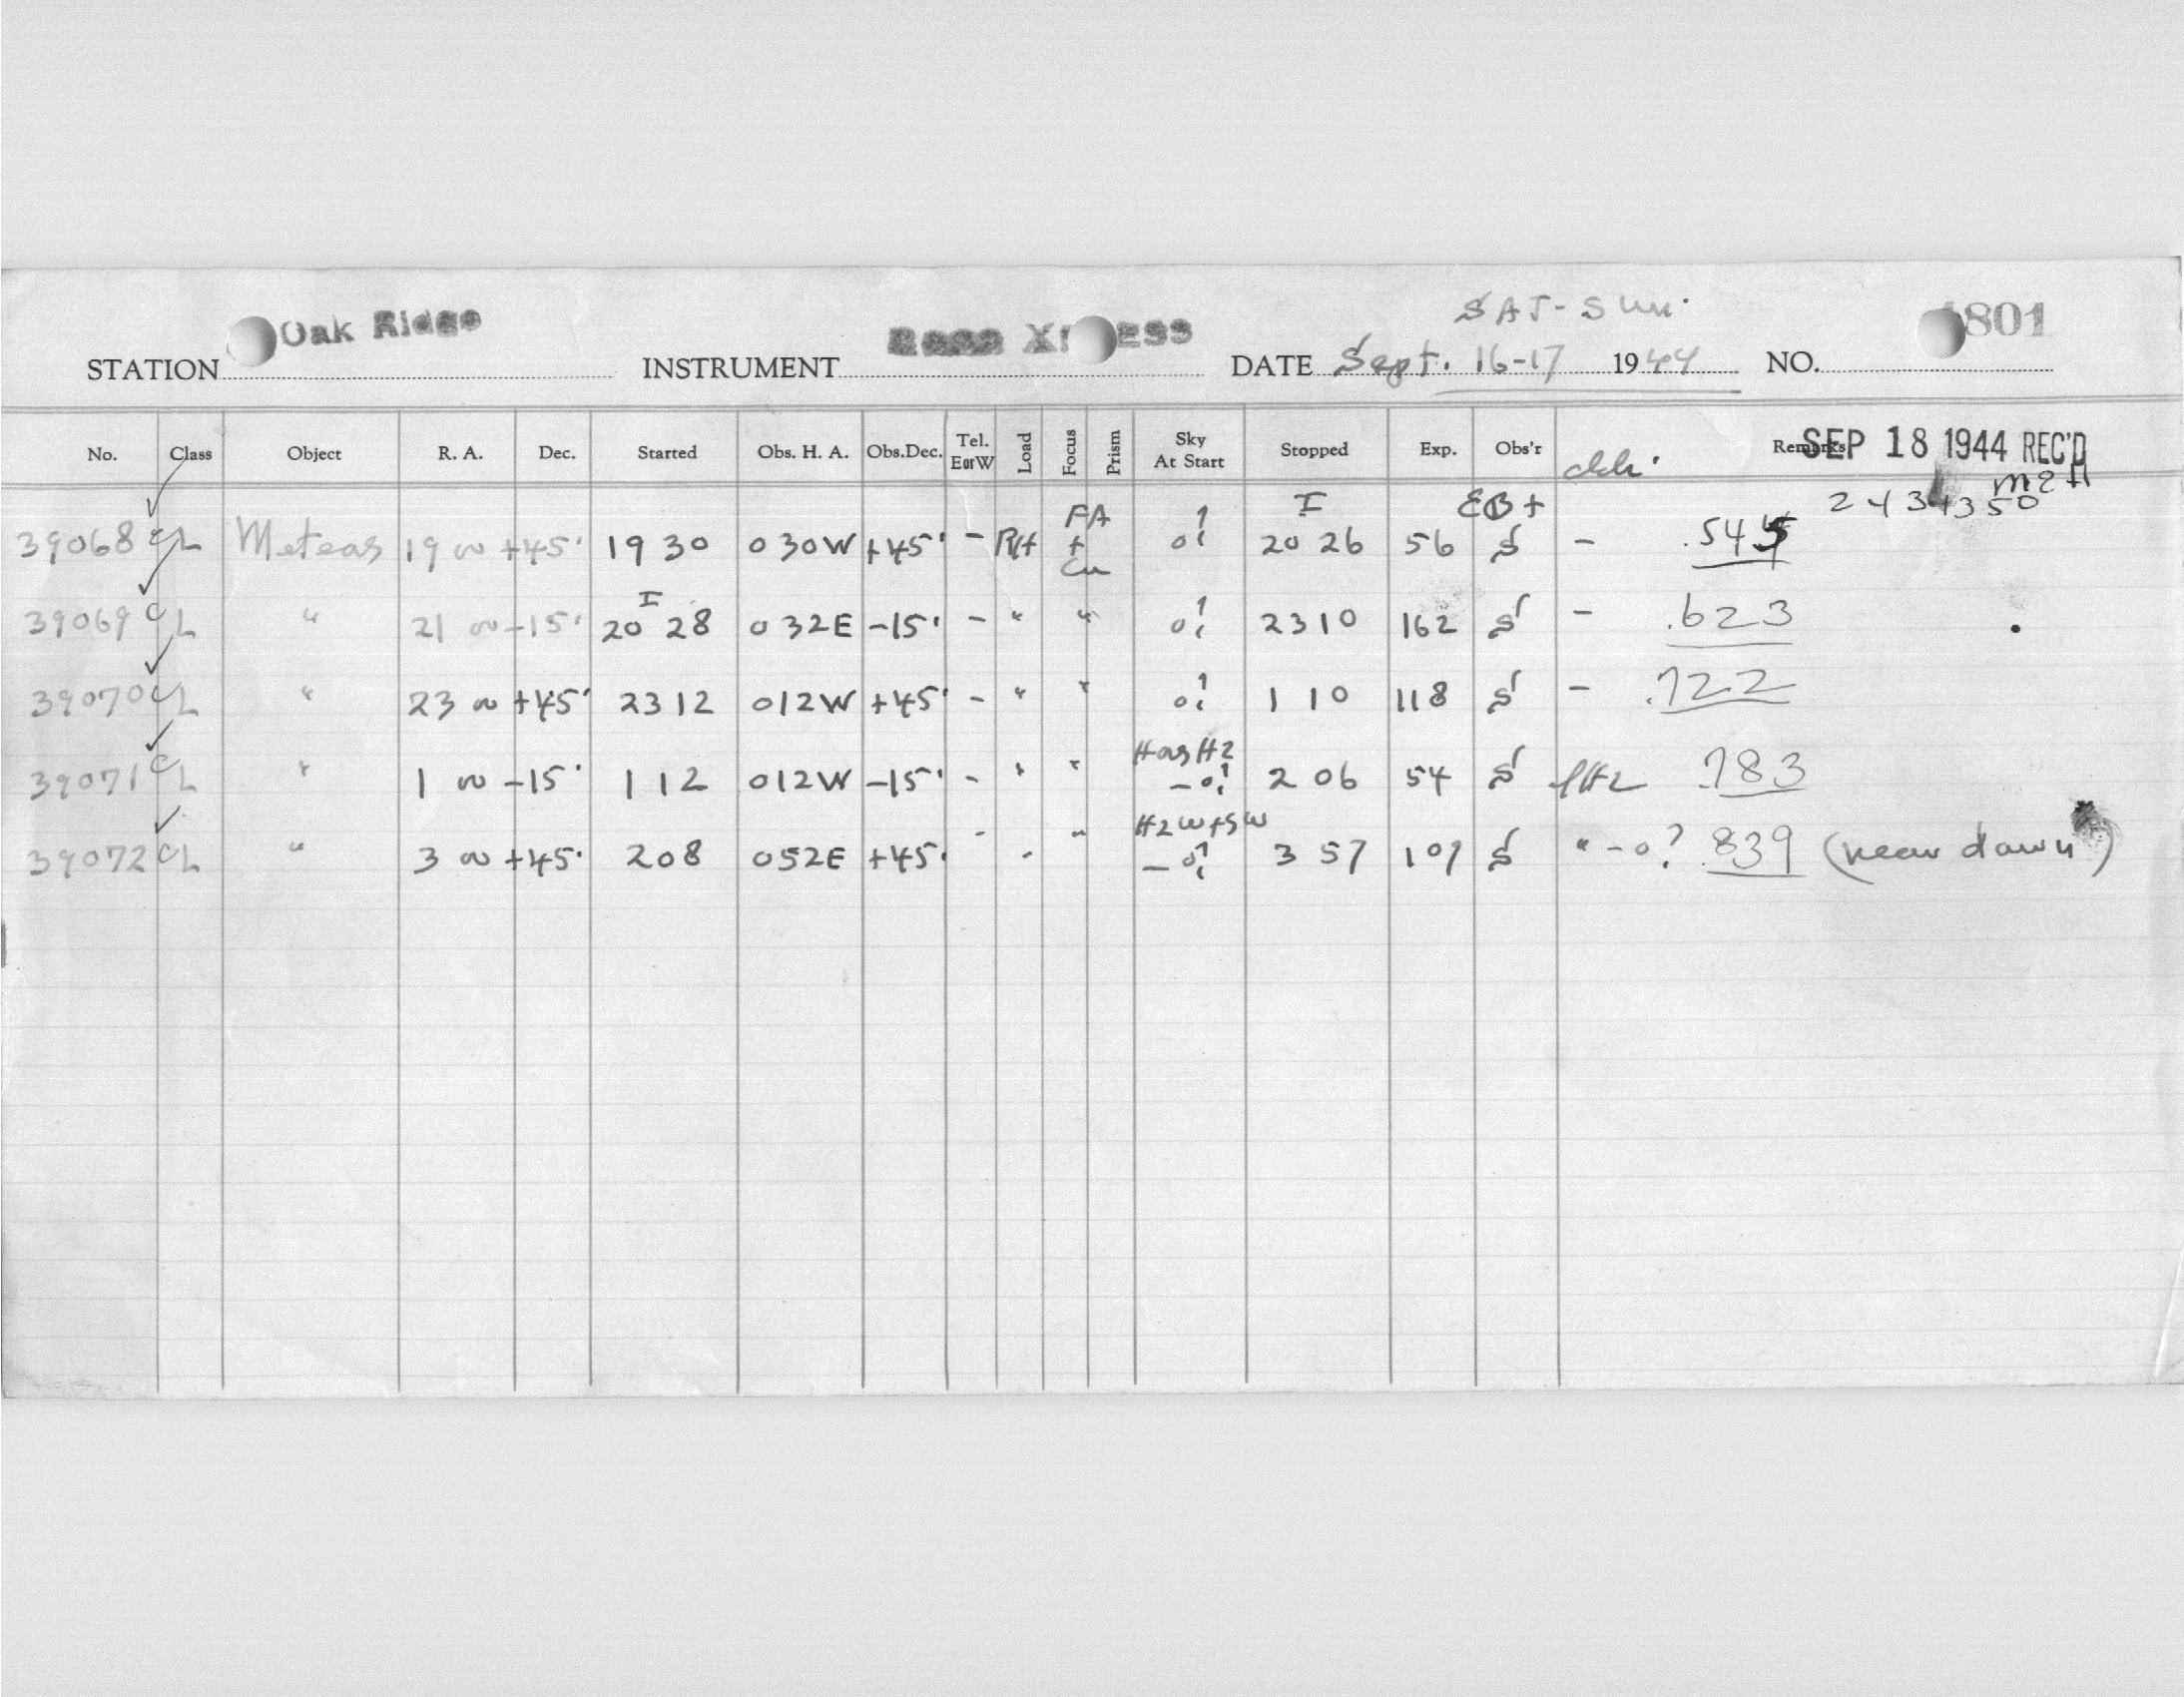 SAT-Sun.
STATION Oak Ridge INSTRUMENT Ross X ess DATE Sept. 16-17 1944 NO. 801
No. Class Object R. A. Dec. Started Obs. H. A. Obs.Dec. Tel. EorW Load Focus Prism Sky At Start Stopped Exp. Obs'r Remarks
SEP 18 1944 REC'D
2434350
39068 CL Meteors 19 00 +45° 19 30 0 30W +45° - RH FA + Cu 20 26 56 EB + S - .545
39069 CL " 21 00 -15° 20 28 0 32E -15° - " " 23 10 162 S - .623
39070 CL " 23 00 +45° 23 12 0 12W +45° - " " 1 10 118 S - .722
39071 CL " 1 00 -15° 1 12 0 12W -15° - " " 2 06 54 S .783
39072 CL " 3 00 +45° 2 08 0 52E +45° - " " HzW+SW 3 57 109 S " -0? .839 (near dawn)